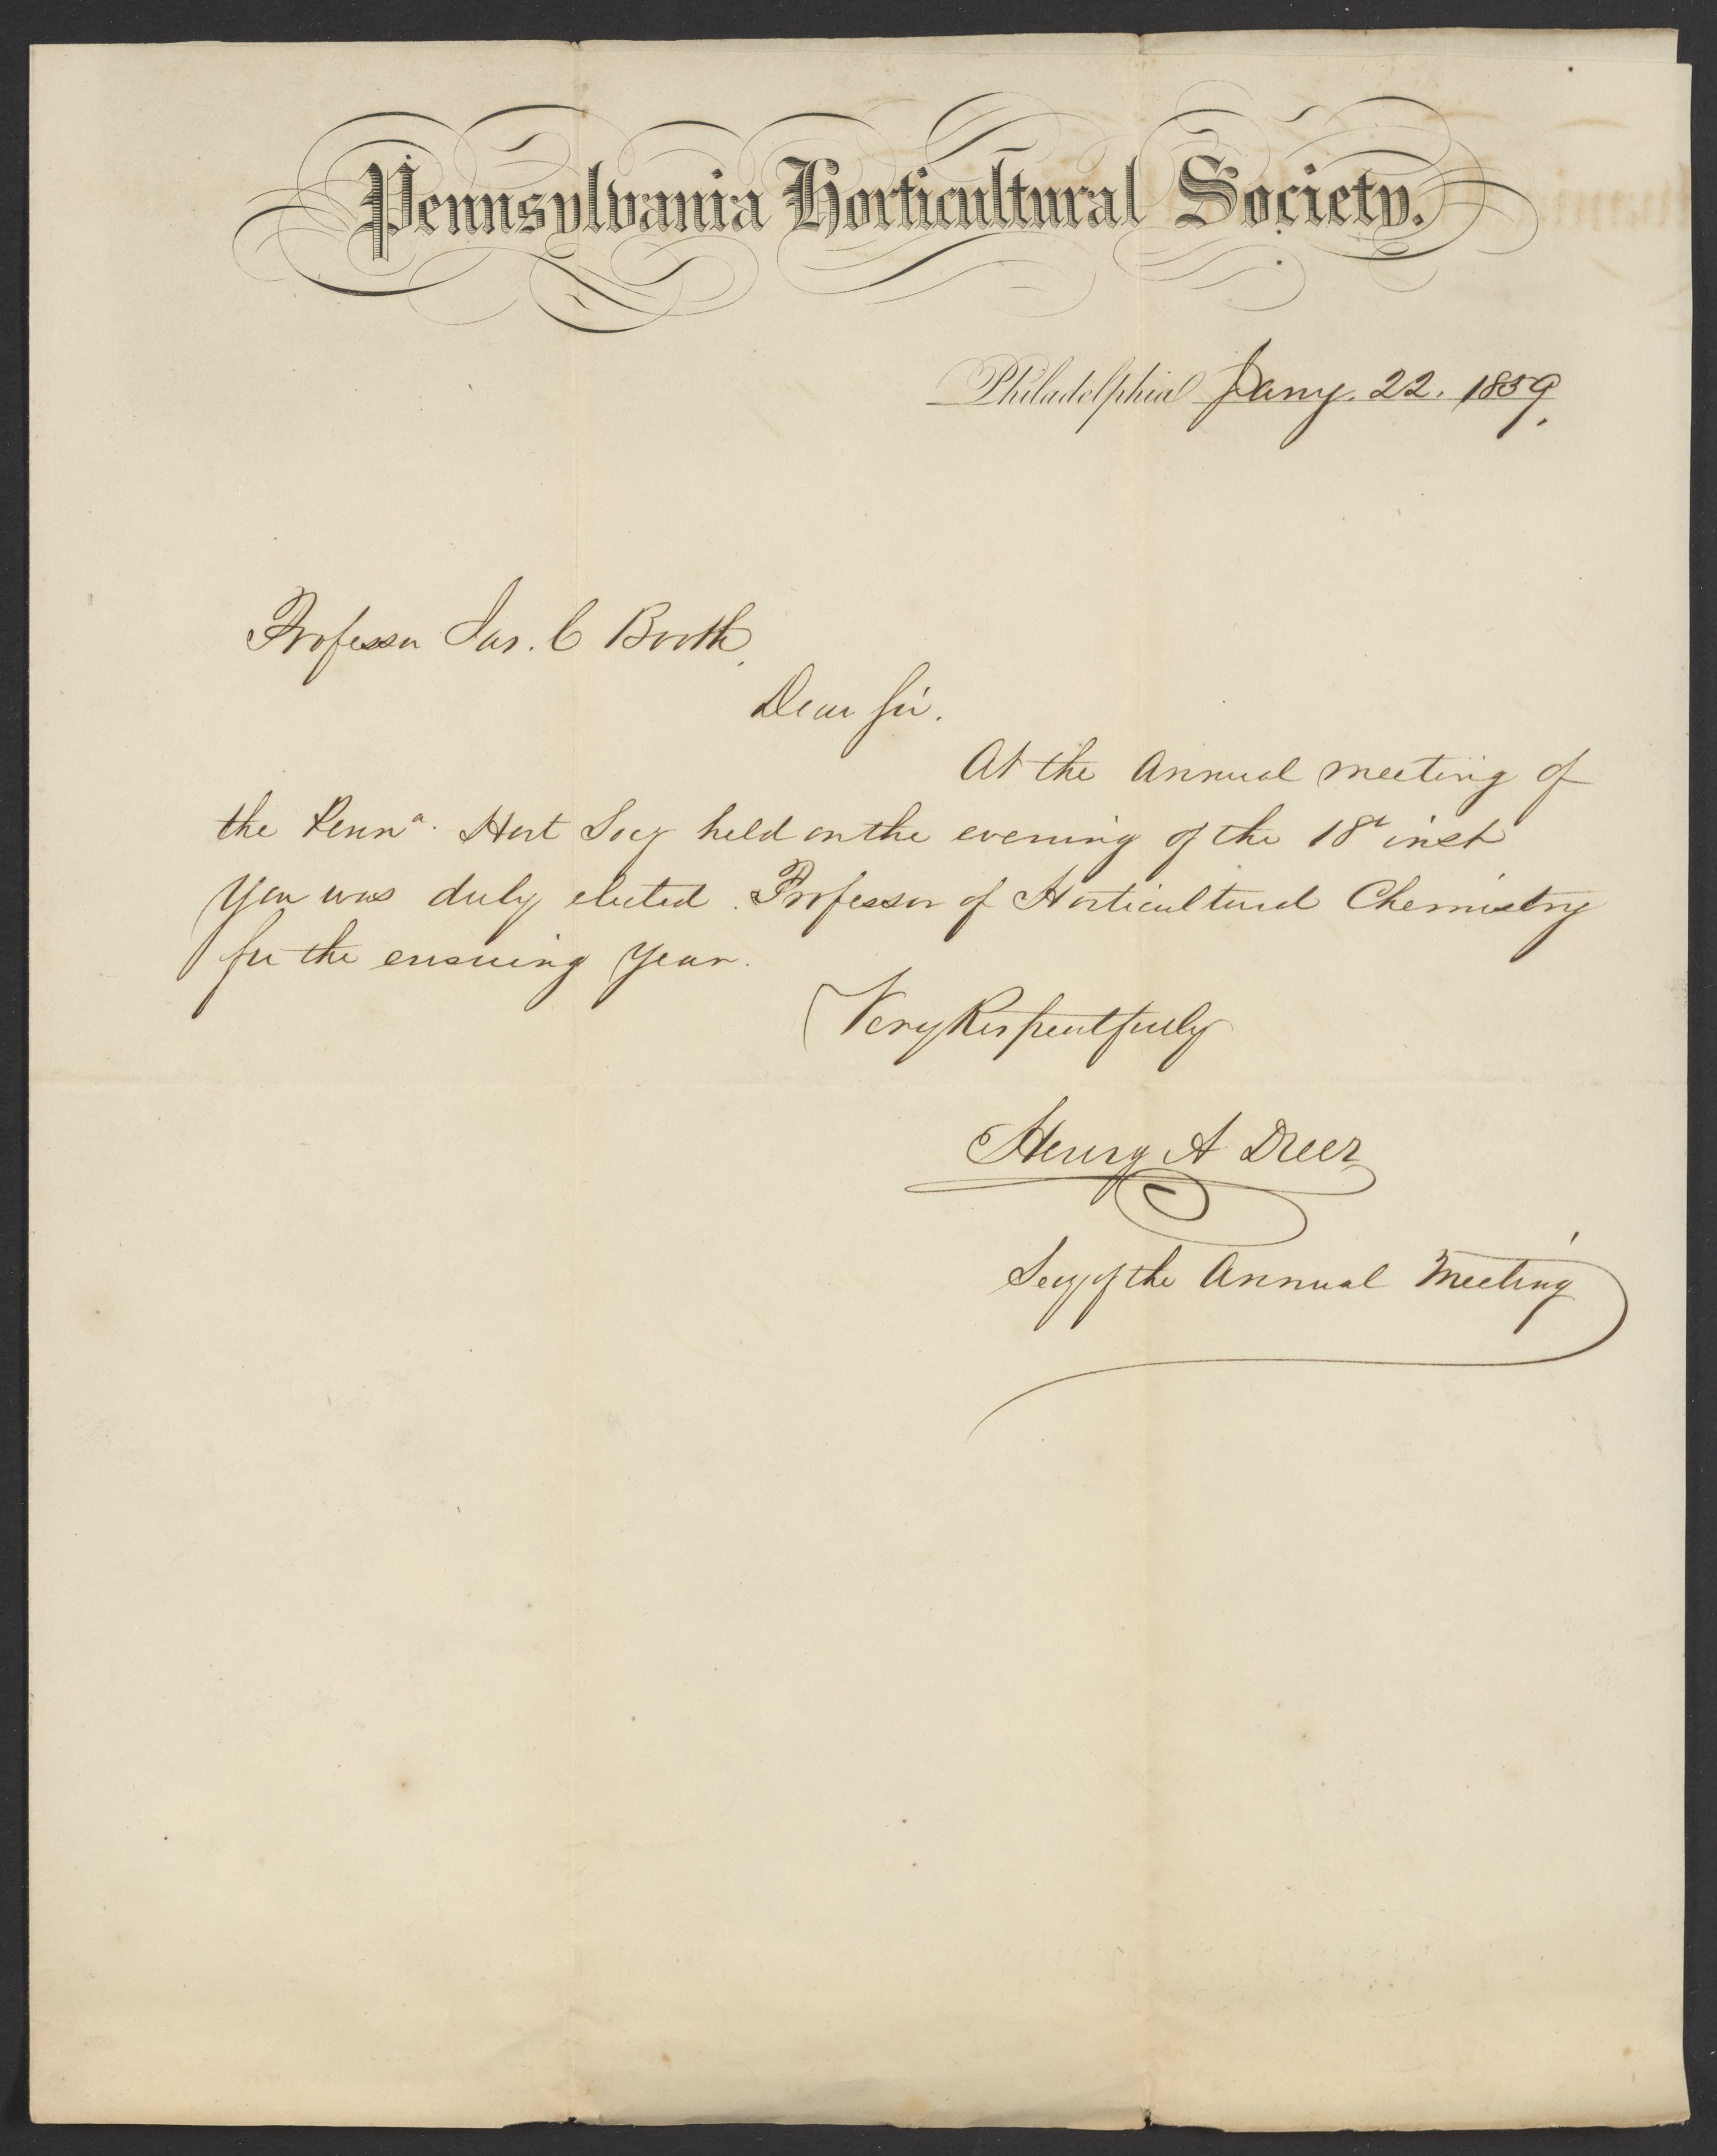 Pennsylvania Horticultural Society.
Philadelphia Jany. 22. 1859.
Professor Jas. C Booth.
Dear Sir.
At the Annual meeting of
the Penna. Hort Socy held on the evening of the 18t inst
You was duly elected Professor of Horticultural Chemistry
for the ensuing Year.
Very Respectfully
Henry A Dreer
Secy of the Annual Meeting